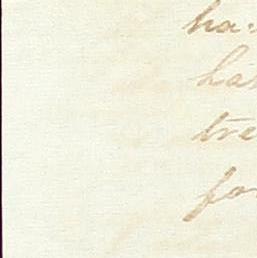 ha
has
tre
for